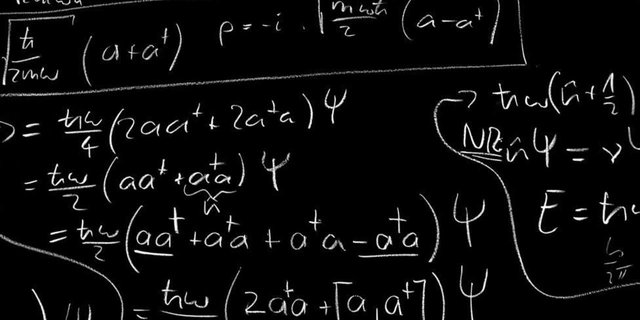 √(ħ/2mω) (a+a†) p=-i·√(mωħ/2) (a-a†)
= ħω/4 (2aa†+2a†a)Ψ
= ħω/2 (aa†+a†a)Ψ
n̂
= ħω/2 (aa†+a†a+a†a-a†a)Ψ
= ħω/2 (2a†a+[a,a†])Ψ
→ ħω(n̂+1/2)
NR n̂Ψ=νΨ
E=ħω
h/2π